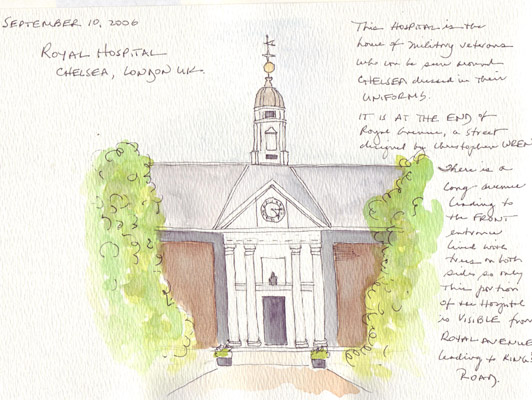 SEPTEMBER 10, 2006
ROYAL HOSPITAL
CHELSEA, LONDON UK.
This HOSPITAL is the
home of military veterans
who can be seen around
CHELSEA dressed in their
UNIFORMS.
IT IS AT THE END of
Royal Avenue, a street
designed by Christopher WREN
There is a
long avenue
leading to
the FRONT
entrance
lined with
trees on both
sides so only
This portion
of the Hospital
is VISIBLE from
ROYAL AVENUE
leading to KINGS
ROAD.